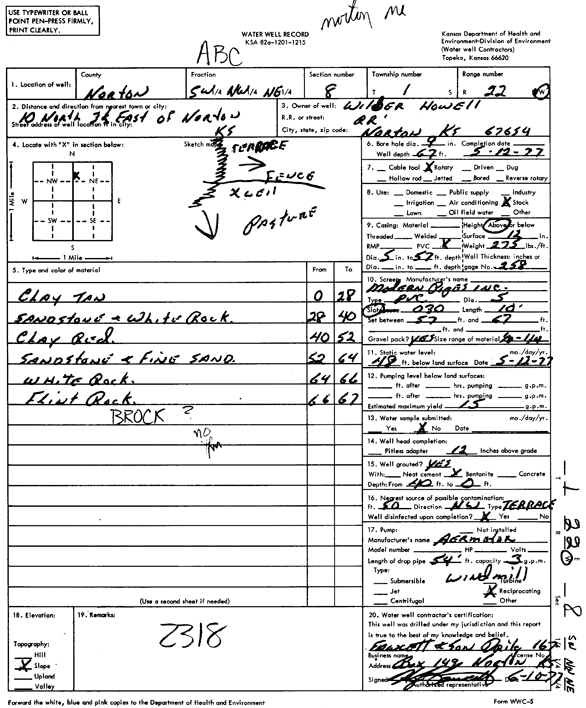 USE TYPEWRITER OR BALL
POINT PEN-PRESS FIRMLY,
PRINT CLEARLY.
norton ne
WATER WELL RECORD
KSA 82a-1201-1215
Kansas Department of Health and
Environment-Division of Environment
(Water well Contractors)
Topeka, Kansas 66620
ABC
1. Location of well: County Norton Fraction SW 1/4 NW 1/4 NE 1/4 Section number 8 Township number T 1 S Range number R 22 W
2. Distance and direction from nearest town or city: 10 North East of Norton
Street address of well location if in city: KS
3. Owner of well: Howell
R.R. or street: RR
City, state, zip code: Norton KS 67654
4. Locate with "X" in section below:
N
NW NE
X
W E
SW SE
S
1 Mile
1 Mile
Sketch map:
TERRACE
FENCE
X WELL
PASTURE
6. Bore hole dia. 9 in. Completion date
Well depth 67 ft. 5-12-77
7. Cable tool X Rotary Driven Dug
Hollow rod Jetted Bored Reverse rotary
8. Use: Domestic Public supply Industry
Irrigation Air conditioning X Stock
Lawn Oil field water Other
9. Casing: Material Height: Above or below
Threaded Welded Surface 12 in.
RMP PVC X Weight 275 lbs./ft.
Dia. 5 in. to 57 ft. depth Wall Thickness: inches or
Dia. in. to ft. depth gage No. 258
10. Screen: Manufacturer's name
Modern Pipes Inc.
Type PVC Dia. 5
Slot 030 Length 10'
Set between 57 ft. and 67 ft.
ft. and ft.
Gravel pack? YES Size range of material
11. Static water level: mo./day/yr.
48 ft. below land surface Date 5-12-77
12. Pumping level below land surfaces:
ft. after hrs. pumping g.p.m.
ft. after hrs. pumping g.p.m.
Estimated maximum yield 15 g.p.m.
13. Water sample submitted: mo./day/yr.
Yes X No Date
14. Well head completion:
Pitless adapter 12 Inches above grade
15. Well grouted? YES
With: Neat cement X Bentonite Concrete
Depth: From 40 ft. to 0 ft.
16. Nearest source of possible contamination:
ft. 50 Direction NW Type TERRACE
Well disinfected upon completion? X Yes No
17. Pump: Not installed
Manufacturer's name AERMOTOR
Model number HP Volts
Length of drop pipe 54' ft. capacity 3 g.p.m.
Type: WINDMILL
Submersible Turbine
Jet X Reciprocating
Centrifugal Other
5. Type and color of material From To
CLAY TAN 0 28
SANDSTONE & White Rock. 28 40
CLAY Red. 40 52
SANDSTONE & FINE SAND. 52 64
White Rock. 64 66
Flint Rock. 66 67
BROCK ?
no
(Use a second sheet if needed)
18. Elevation:
Topography:
Hill
X Slope
Upland
Valley
19. Remarks:
2318
20. Water well contractor's certification:
This well was drilled under my jurisdiction and this report
is true to the best of my knowledge and belief.
Fawcett & Son 167
Business name License No.
Address Box 149 Norton KS
Signed Date 6-10-77
Authorized representative
1
22 W
8
SW NW NE
Forward the white, blue and pink copies to the Department of Health and Environment
Form WWC-5